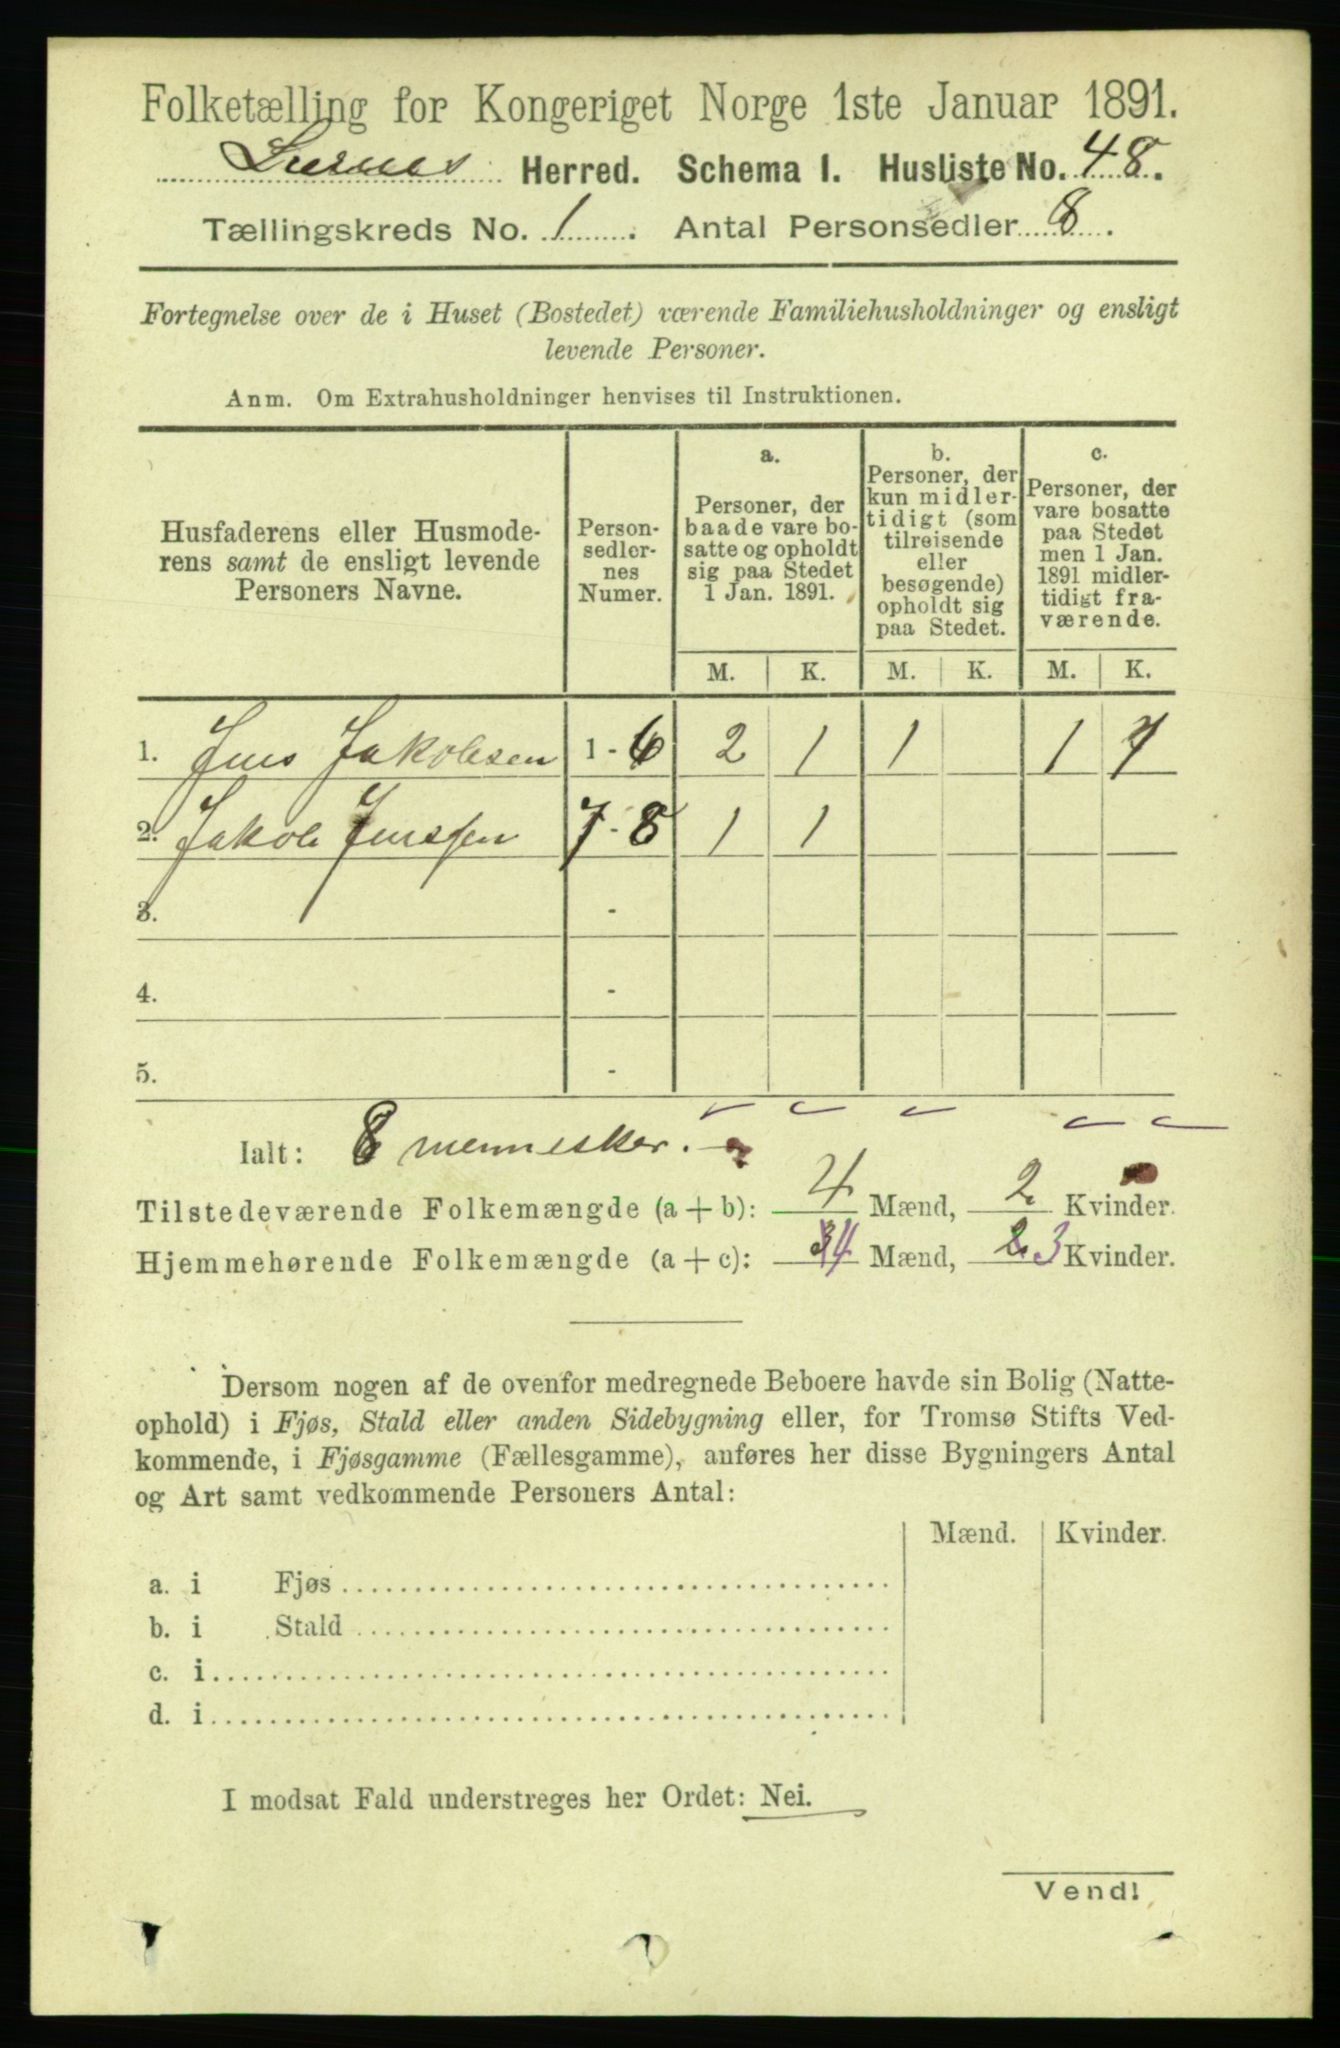 Folketælling for Kongeriget Norge 1ste Januar 1891.
Herred. Schema I. Husliste No. 48.
Tællingskreds No. 1. Antal Personsedler 8.
Fortegnelse over de i Huset (Bostedet) værende Familiehusholdninger og ensligt
levende Personer.
Anm. Om Extrahusholdninger henvises til Instruktionen.
Husfaderens eller Husmode-
rens samt de ensligt levende
Personers Navne.
Person-
sedler-
nes
Numer.
a.
Personer, der
baade vare bo-
satte og opholdt
sig paa Stedet
1 Jan. 1891.
b.
Personer, der
kun midler-
tidigt (som
tilreisende
eller
besøgende)
opholdt sig
paa Stedet.
c.
Personer, der
vare bosatte
paa Stedet
men 1 Jan.
1891 midler-
tidigt fra-
værende.
M. K. M. K. M. K.
1. Jens Jakobsen 1 - 6 2 1 1 1 1
2. Jakob Jenssen 7 - 8 1 1
3. -
4. -
5. -
Ialt: 8 mennesker.
Tilstedeværende Folkemængde (a + b): 4 Mænd, 2 Kvinder.
Hjemmehørende Folkemængde (a + c): 3 4 Mænd, 2 3 Kvinder.
Dersom nogen af de ovenfor medregnede Beboere havde sin Bolig (Natte-
ophold) i Fjøs, Stald eller anden Sidebygning eller, for Tromsø Stifts Ved-
kommende, i Fjøsgamme (Fællesgamme), anføres her disse Bygningers Antal
og Art samt vedkommende Personers Antal:
Mænd. Kvinder.
a. i Fjøs
b. i Stald
c. i
d. i
I modsat Fald understreges her Ordet: Nei.
Vend!